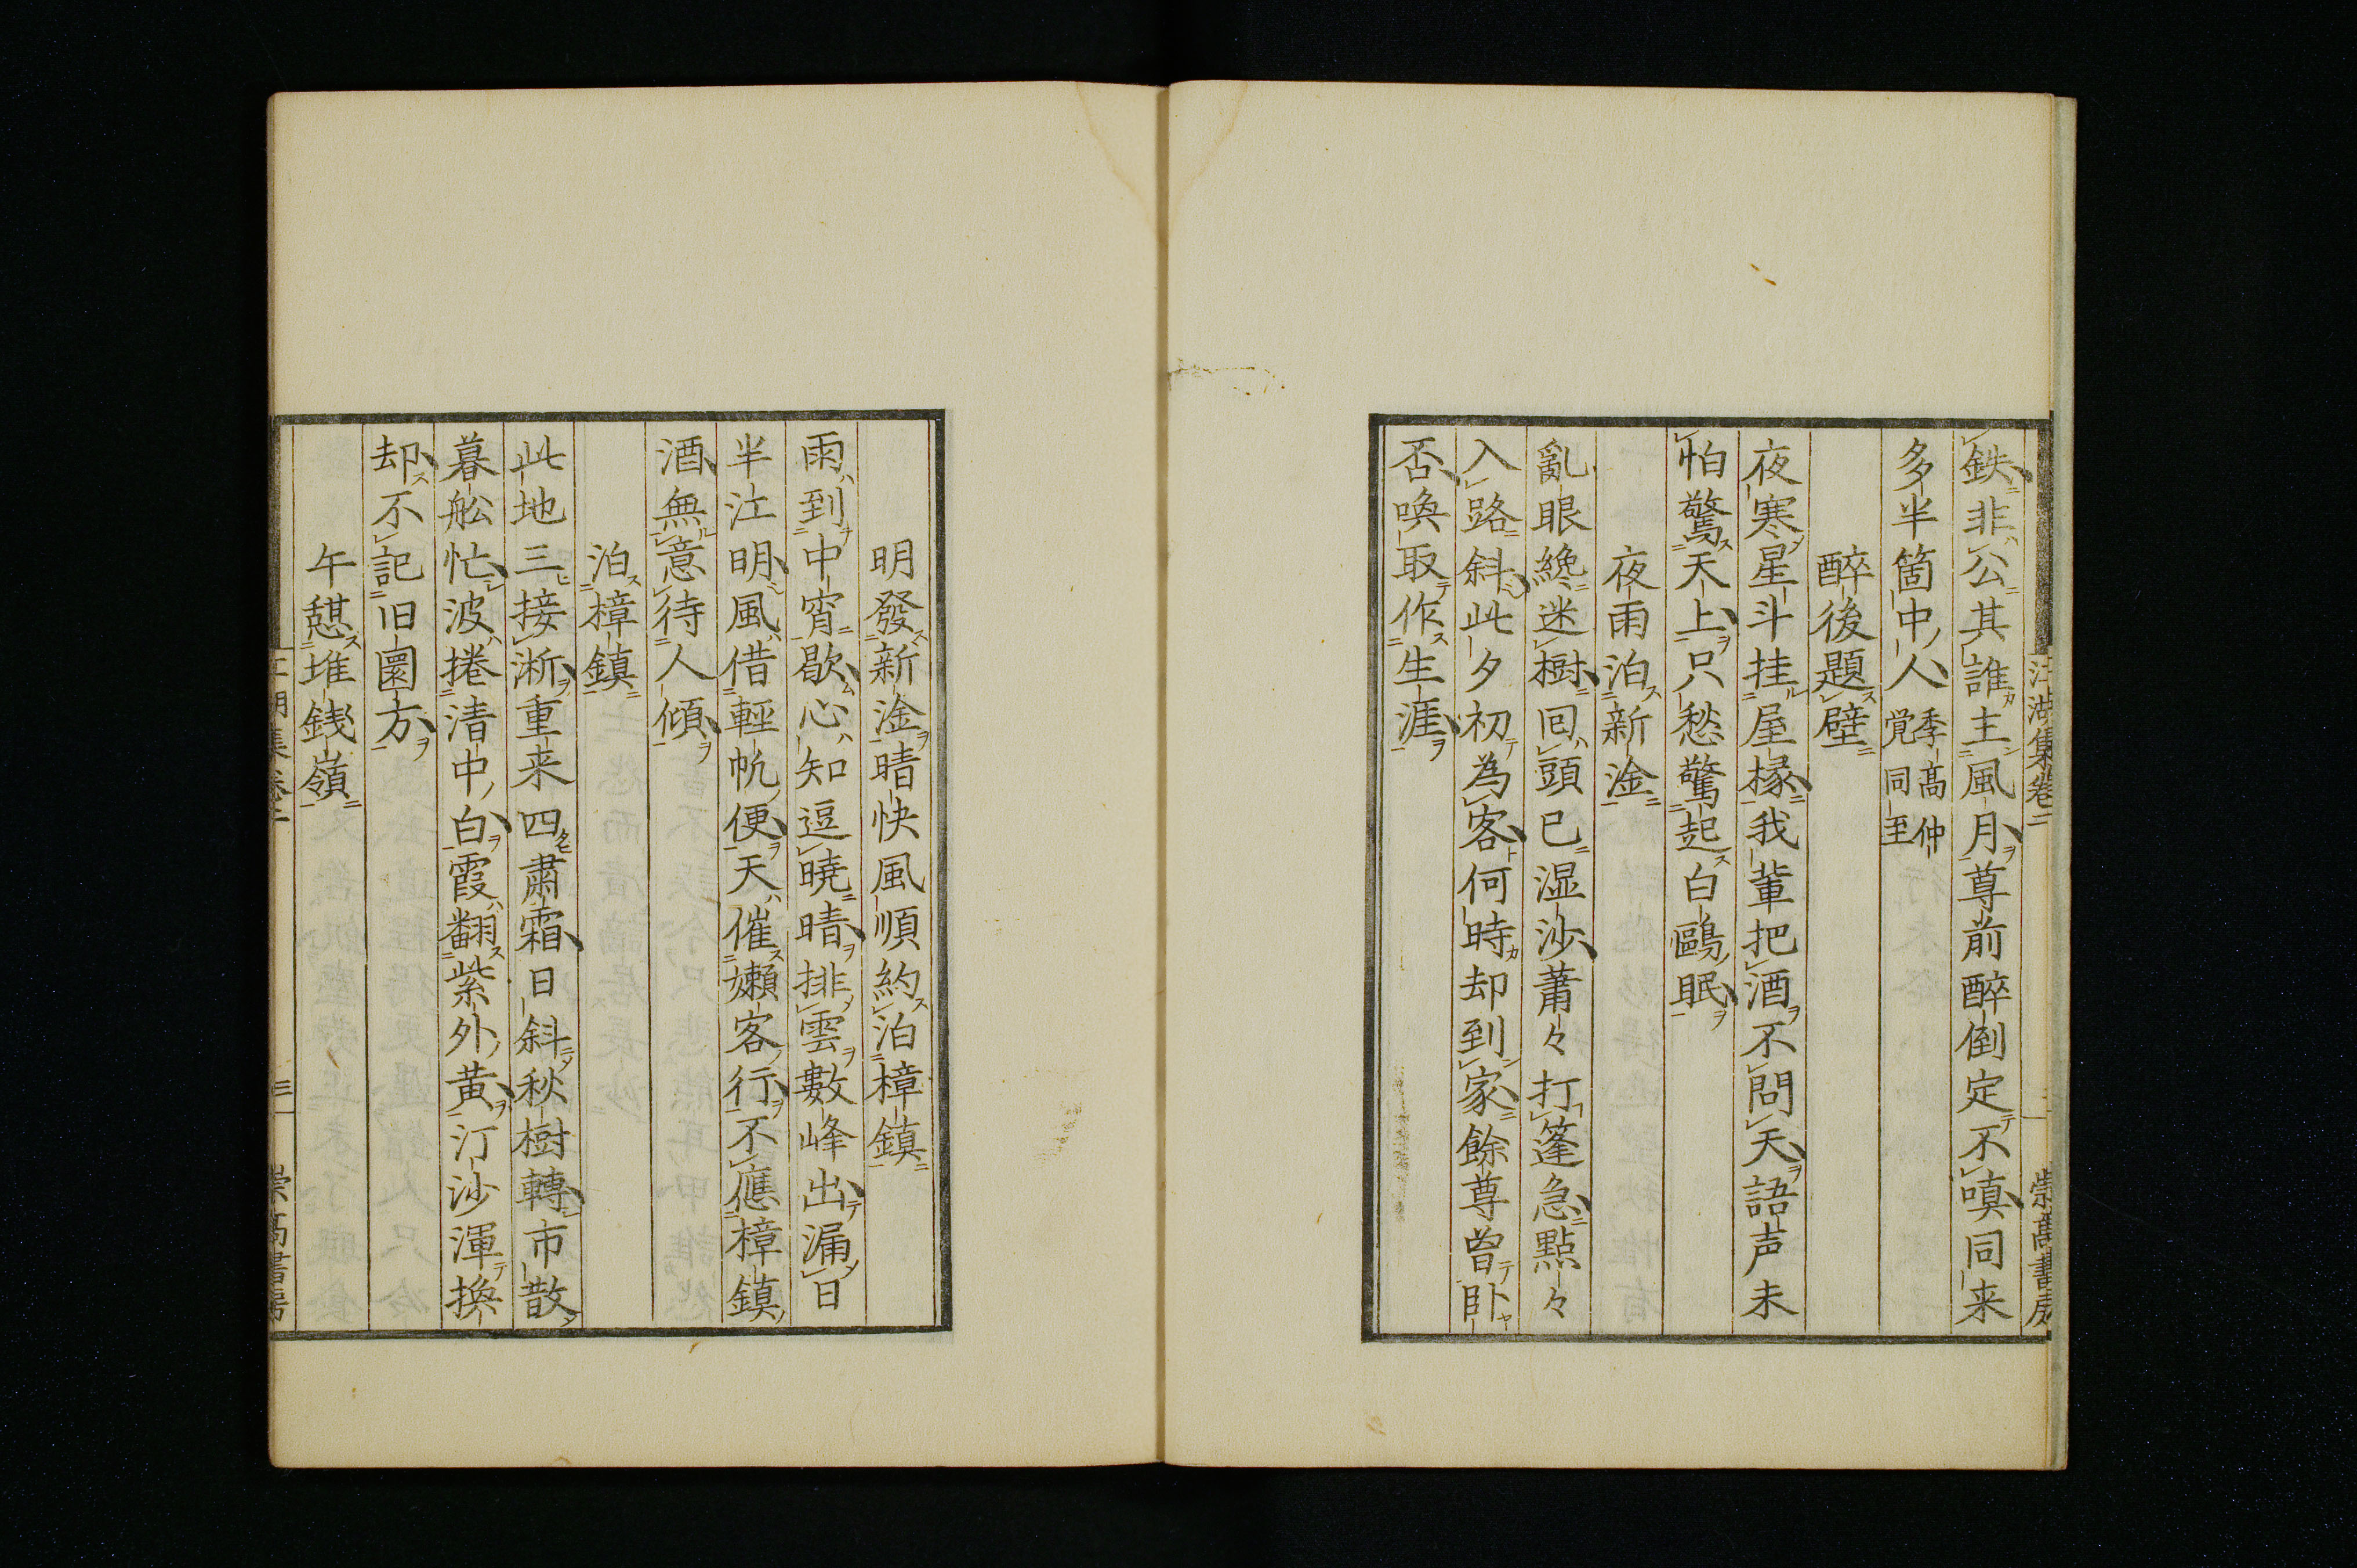 江湖集卷二
崇高書房
鉄非公其誰主風月尊前醉倒定不嗔同来
多半箇中人季高仲覚同至
醉後題壁
夜寒星斗挂屋椽我輩把酒不問天語声未
怕驚天上只愁驚起白鷗眠
夜雨泊新淦
亂眼纔迷樹回頭已湿沙蕭々打篷急點々
入路斜此夕初為客何時却到家餘尊曾卧
否喚取作生涯
明發新淦晴快風順約泊樟鎮
雨到中宵歇心知逗曉晴排雲數峰出漏日
半江明風借輕帆便天催嬾客行不應樟鎮
酒無意待人傾
泊樟鎮
此地三接淅重来四肅霜日斜秋樹轉市散
暮舩忙波捲清中白霞翻紫外黃汀沙渾換
却不記旧園方
午憩堆銭嶺
三
崇高書房